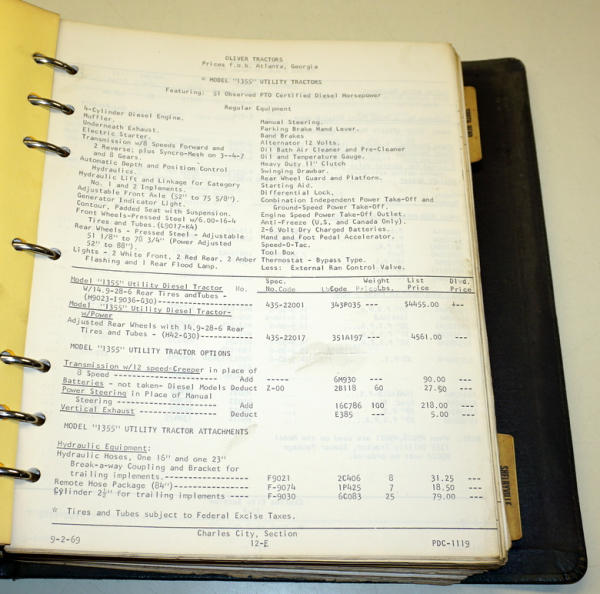 OLIVER TRACTORS
Prices f.o.b. Atlanta, Georgia
* MODEL "1355" UTILITY TRACTORS
Featuring: 51 Observed PTO Certified Diesel Horsepower
Regular Equipment
4-Cylinder Diesel Engine.
Muffler.
Underneath Exhaust.
Electric Starter.
Transmission w/8 Speeds Forward and
2 Reverse; plus Syncro-Mesh on 3--4-7
and 8 Gears.
Automatic Depth and Position Control
Hydraulics.
Hydraulic Lift and Linkage for Category
No. 1 and 2 Implements.
Adjustable Front Axle (52" to 75 5/8").
Generator Indicator Light.
Contour, Padded Seat with Suspension.
Front Wheels-Pressed Steel w/6.00-16-4
Tires and Tubes.(L9017-K4)
Rear Wheels - Pressed Steel - Adjustable
51 1/8" to 78 3/4" (Power Adjusted
52" to 88").
Lights - 2 White Front, 2 Red Rear, 2 Amber
Flashing and 1 Rear Flood Lamp.
Manual Steering.
Parking Brake Hand Lever.
Band Brakes
Alternator 12 Volts.
Oil Bath Air Cleaner and Pre-Cleaner
Oil and Temperature Gauge.
Heavy Duty 11" Clutch
Swinging Drawbar.
Rear Wheel Guard and Platform.
Starting Aid.
Differential Lock.
Combination Independent Power Take-Off and
Ground-Speed Power Take-Off.
Engine Speed Power Take-Off Outlet.
Anti-Freeze (U.S. and Canada Only).
2-6 Volt Dry Charged Batteries.
Hand and Foot Pedal Accelerator.
Speed-O-Tac.
Tool Box
Thermostat - Bypass Type.
Less: External Ram Control Valve.
Spec. Weight List Dlvd.
No. No.Code Code Lbs. Price Price
Model "1355" Utility Diesel Tractor
W/14.9-28-6 Rear Tires andTubes -
(H9023-I9036-G30)------------------- 435-22001 343P035 --- $4455.00 +--
Model "1355" Utility Diesel Tractor-
w/Power
Adjusted Rear Wheels with 14.9-28-6 Rear
Tires and Tubes - (H42-G30)--------- 435-22017 351A197 --- 4561.00 ---
MODEL "1355" UTILITY TRACTOR OPTIONS
Transmission w/12 speed-Creeper in place of
8 Speed -------------------- Add ----- 6M930 --- 90.00 ---
Batteries - not taken- Diesel Models Deduct Z-00 2B118 60 27.50 ---
Power Steering in Place of Manual
Steering ------------------- Add 16C786 100 218.00 ---
Vertical Exhaust --------------- Deduct E385 --- 5.00 ---
MODEL "1355" UTILITY TRACTOR ATTACHMENTS
Hydraulic Equipment:
Hydraulic Hoses, One 16" and one 23"
Break-a-way Coupling and Bracket for
trailing implements.---------------- F9021 2C406 8 31.25 ---
Remote Hose Package (84")--------------- F-9074 1P425 7 18.50 ---
Cylinder 2½" for trailing implements --- F-9030 6C083 25 79.00 ---
* Tires and Tubes subject to Federal Excise Taxes.
Charles City, Section
9-2-69 12-E PDC-1119
SHELBYVILLE